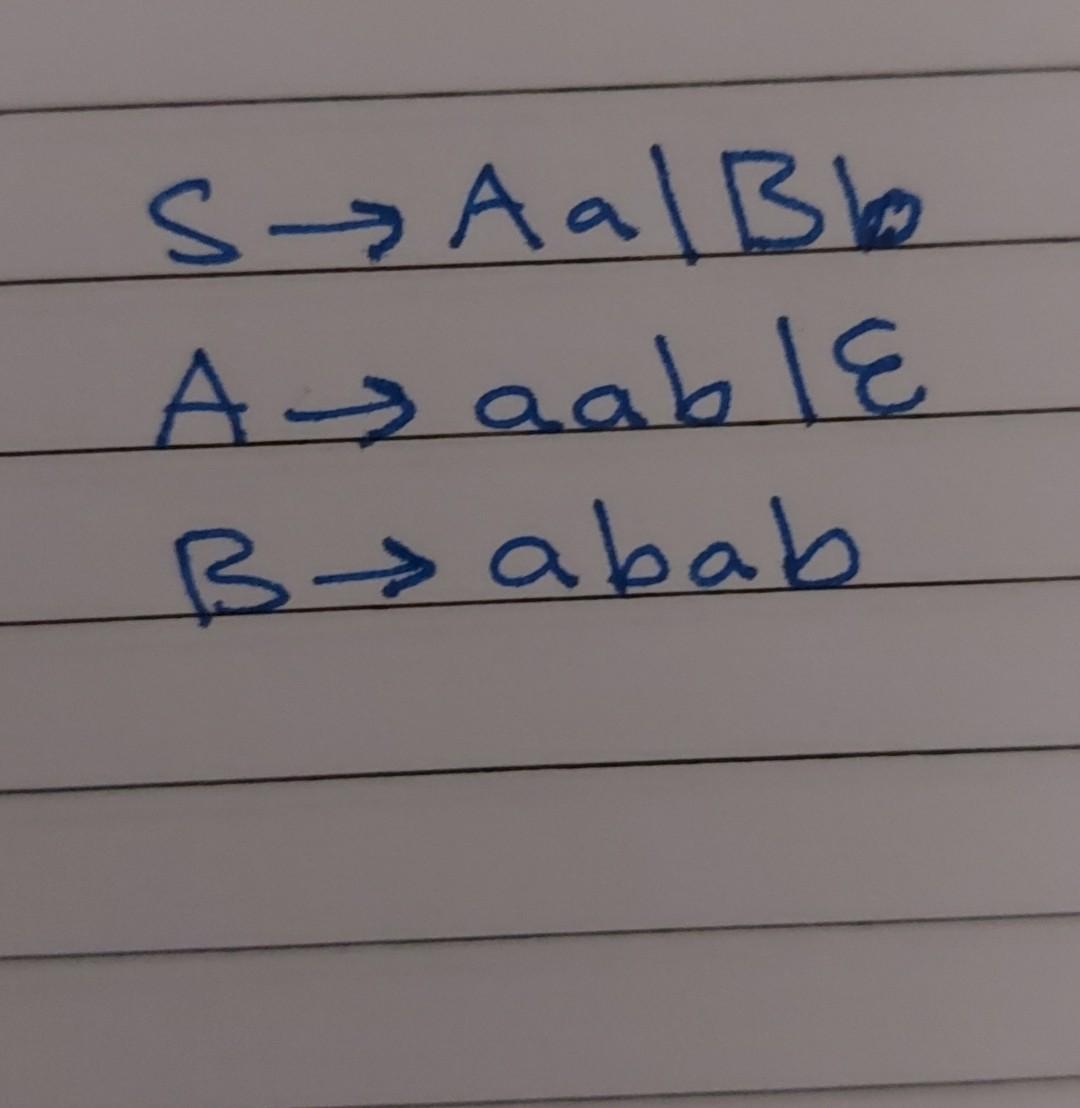 S → Aa | Bb
A → aab | ε
B → abab